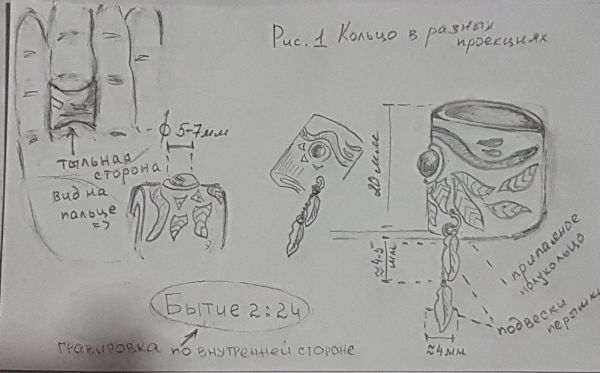 Рис. 1 Кольцо в разных
проекциях
ϕ 5-7мм
тыльная
сторона
вид на
пальце
=>
20 мм
≈4-5
мм
припаяное
полукольцо
подвески
перышки
≈4мм
Бытие 2:24
гравировка по внутренней стороне